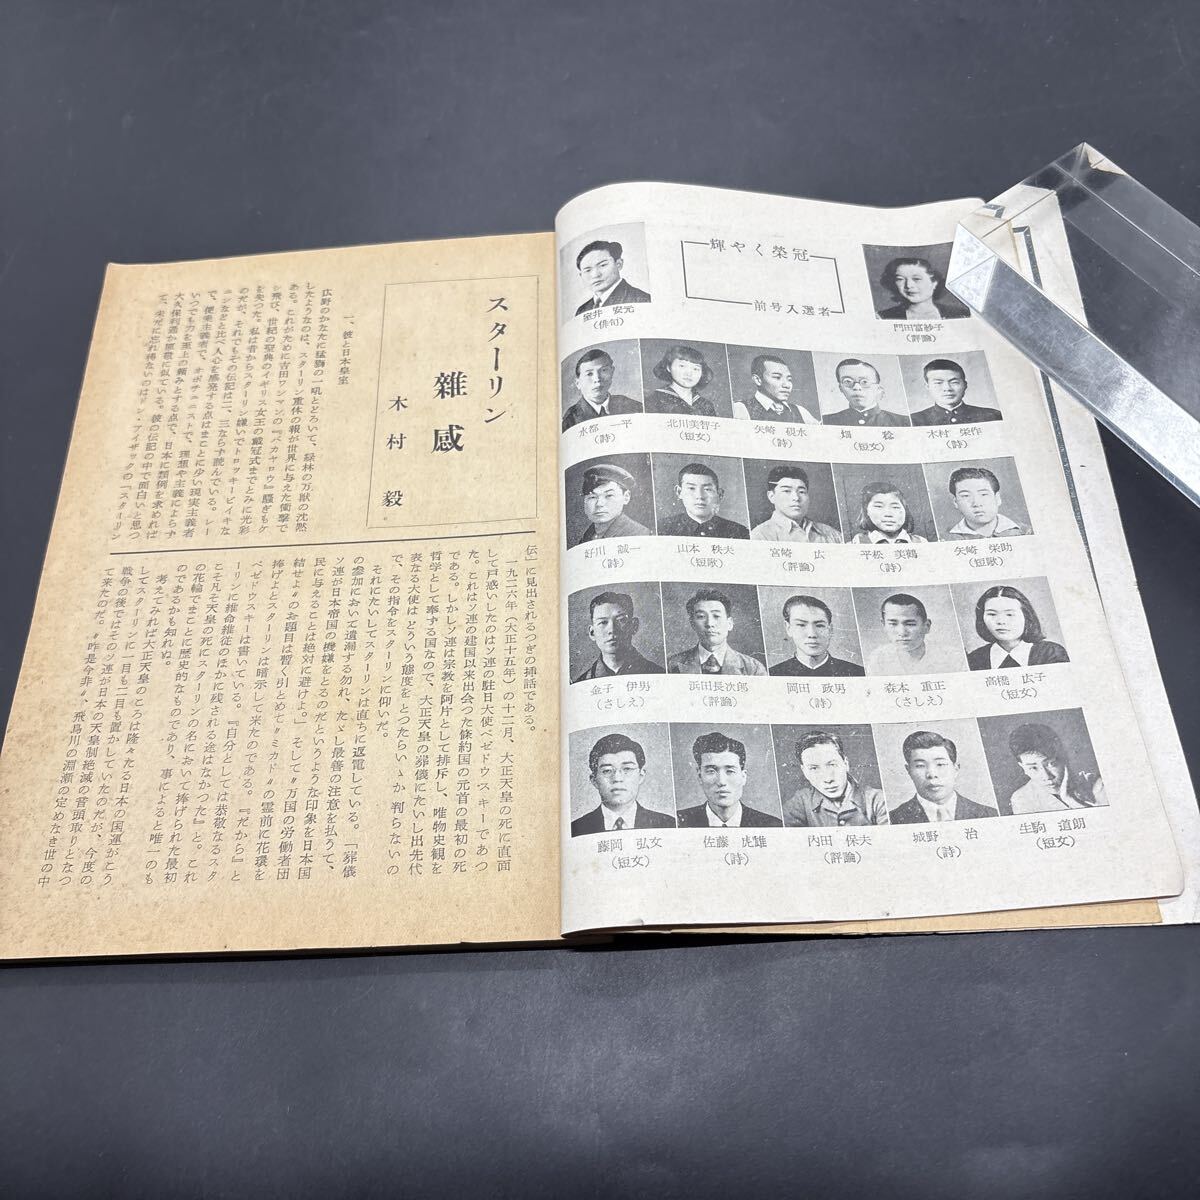 輝やく榮冠
前号入選者
門田富紗子
(評論)
室井 安元
(俳句)
木村 栄作
(詩)
畑 稔
(短文)
矢崎 硯水
(詩)
北川美智子
(短文)
水都 一平
(詩)
矢崎 栄助
(短歌)
平松 美鶴
(詩)
宮崎 広
(評論)
山本 秩夫
(短歌)
好川 誠一
(詩)
高橋 広子
(短文)
森本 重正
(さしえ)
岡田 政男
(詩)
浜田長次郎
(評論)
金子 伊男
(さしえ)
生駒 道朗
(短文)
城野 治
(詩)
内田 保夫
(評論)
佐藤 虎雄
(詩)
藤岡 弘文
(短文)
スターリン
雜感
木村 毅
一、彼と日本皇室
広野のかなたに猛獅の一吼とどろいて、緑林の万獣の沈黙
したようなのは、スターリン重休の報が世界に与えた衝撃で
ある。これがために吉田ワンマンの『バカヤロウ』騒ぎもケ
シ飛び、世紀の聖典のイギリス女王の戴冠式までとみに光彩
を失つた。私は昔からスターリン嫌いでトロッキービイキな
のだが、それでもその伝記は二、三ならず読んでいる。レー
ニンなどと比べ人心を感発する点はまことに少い現実主義者
で、便乗主義者で、オポチュニストで、理想や主義によらず
いつでも力を至上の頼みとする点で、日本に類例を求めれば
大久保利通か原敬に似ている。彼の伝記の中で面白いと思つ
て、未元に忘れ得ないのはドン・アイザックの『スターリン
伝』に見出されるつぎの挿話である。
一九二六年(大正十五年)の十二月、大正天皇の死に直面
して戸惑いしたのはソ連の駐日大使ベゼドウスキーであつ
た。これはソ連の建国以来出会つた條約国の元首の最初の死
である。しかしソ連は宗教を阿片として排斥し、唯物史観を
哲学として奉ずる国なので、大正天皇の葬儀にたいし出先代
表なる大使はどういう態度をとつたらいゝか判らないの
で、その指令をスターリンに仰いだ。
それにたいしてスターリンは直ちに返電している。「葬儀
の参加において遺漏する勿れ、たゞし最善の注意を払うて、
ソ連が日本帝国の機嫌をとるのだというような印象を日本国
民に与えることは絶対に避けよ。」そして〃万国の労働者団
結せよ〃のお題目は暫く引とめて〃ミカド〃の霊前に花環を
捧げよとスターリンは暗示して来たのである。『だから』と
ベゼドウスキーは書いている。『自分としては恭敬なるスタ
ーリンに維命維従のほかに残される途はなかつた』と。これ
こそ凡そ天皇の死にスターリンの名において捧げられた最初
の花輪でまことに歴史的なものであり、事によると唯一のも
のであるかも知れぬ。
考えてみれば大正天皇のころは隆々たる日本の国運がこう
してスターリンに一目も二目も置かしていたのだが、今度の
戦争の後ではそのソ連が日本の天皇制絶滅の音頭取りとなつ
て来たのだ。〃昨是今非〃、飛鳥川の淵瀬の定めなき世の中